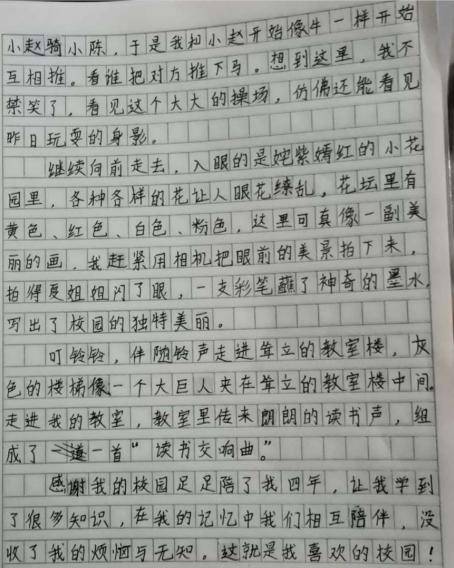 小赵骑小陈，于是我和小赵开始像牛一样开始
互相推。看谁把对方推下马。想到这里，我不
禁笑了，看见这个大大的操场，仿佛还能看见
昨日玩耍的身影。
继续向前走去，入眼的是姹紫嫣红的小花
园里，各种各样的花让人眼花缭乱，花坛里有
黄色、红色、白色、粉色，这里可真像一副美
丽的画，我赶紧用相机把眼前的美景拍下来，
拍得夏姐姐闪了眼，一支彩笔蘸了神奇的墨水，
写出了校园的独特美丽。
叮铃铃，伴随铃声走进耸立的教室楼，灰
色的楼梯像一个大巨人夹在耸立的教室楼中间。
走进我的教室，教室里传来朗朗的读书声，组
成了一首“读书交响曲。”
感谢我的校园足足陪了我四年，让我学到
了很多知识，在我的记忆中我们相互陪伴，没
收了我的烦恼与无知。这就是我喜欢的校园！